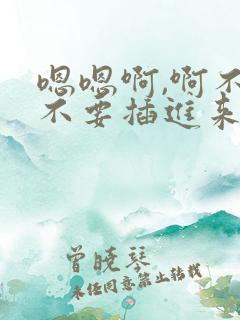 嗯嗯啊,啊不
不要插进来
曾晓琴
未经同意禁止转载